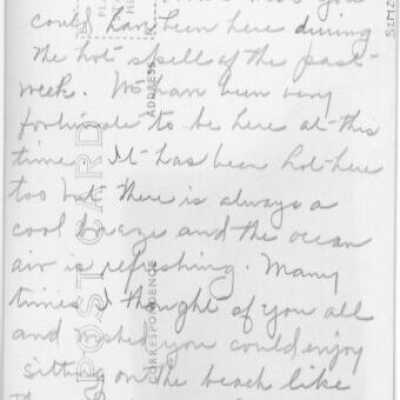 you
could have been here during
the hot spell of the past
week. We have been very
fortunate to be here at this
time. It has been hot here
too but there is always a
cool breeze and the ocean
air is refreshing. Many
times I thought of you all
and wished you could enjoy
sitting on the beach like
POST CARD
ADDRESS
CORRESPONDENCE